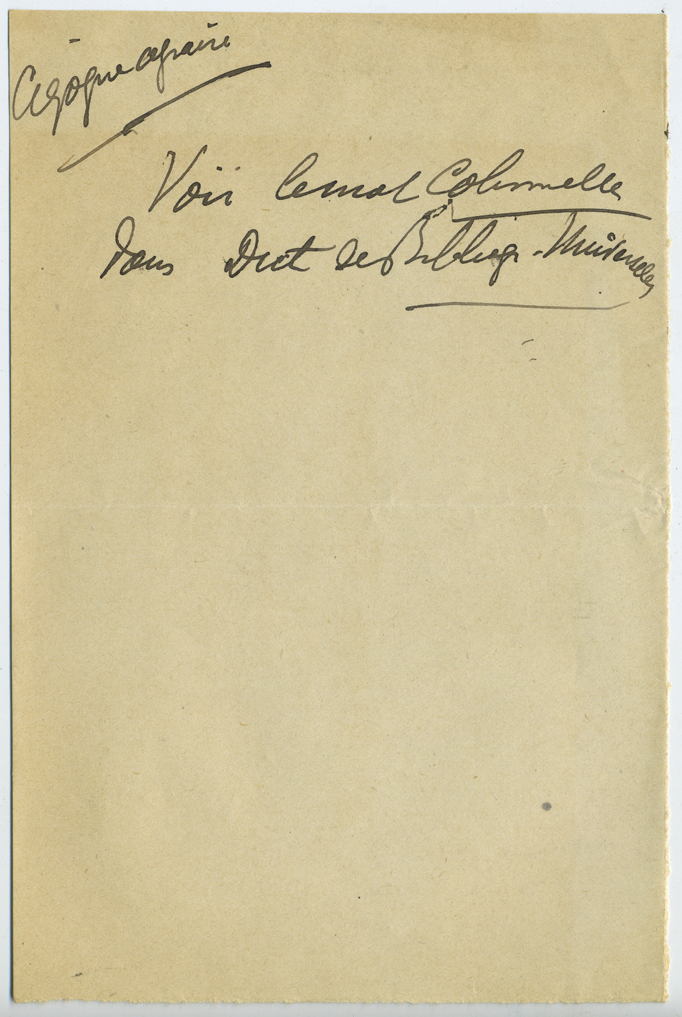 Cigogne agraire
Voir le mot Columelle
dans Dict de Bibliogr. Universelle